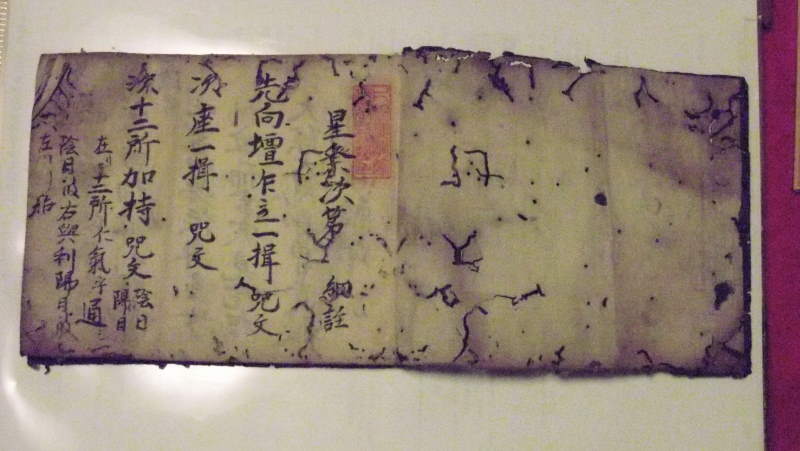 星祭次第 細註
先向壇乍立一揖 咒文
次座一揖 咒文
次十二所加持 咒文 陰日 陽日
在リ十二所仁氣乎通
陰日波右與利陽日波
左